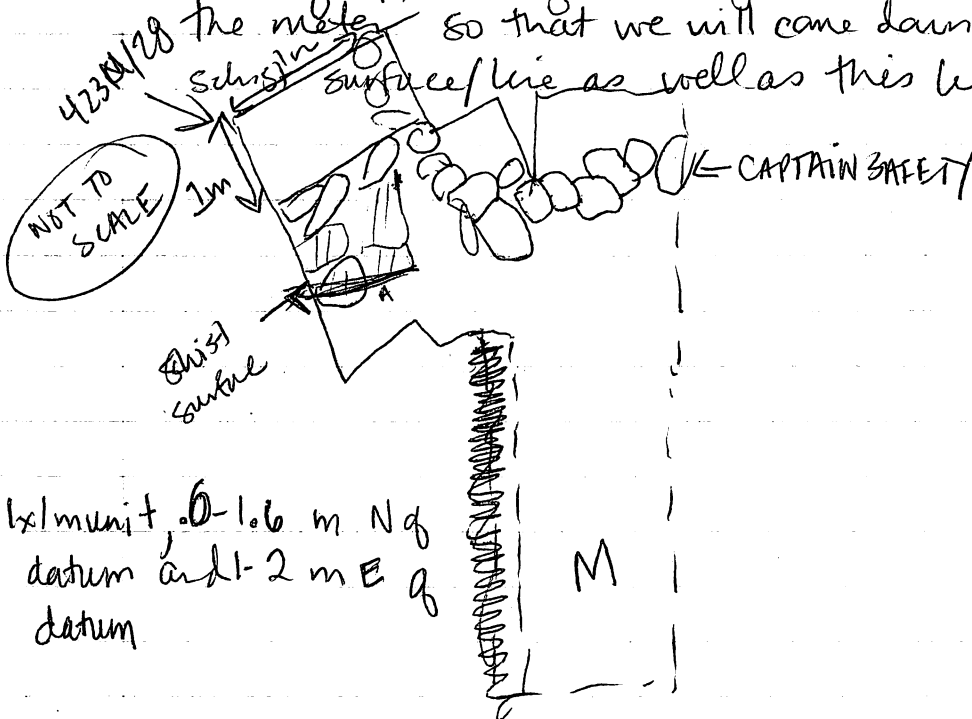 the meter so that we will come down
schist surface/line as well as this
1m
NOT TO
SCALE
1m
← CAPTAIN SAFETY
schist
surface
A
1x1m unit, .6-1.6 m N of
datum and 1-2 m E of
datum
M